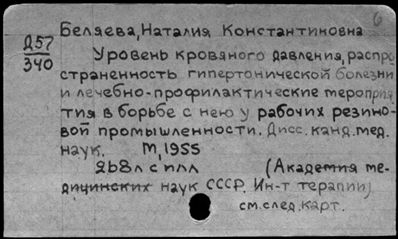 6
Беляева, Наталия Константиновна
Д57
340
Уровень кровяного давления, распро
страненность гипертонической болезни
и лечебно-профилактические меропри
тия в борьбе с нею у рабочих резино-
вой промышленности. Дисс. канд. мед.
наук. М, 1955
(Академия ме-
дицинских наук СССР. Ин-т терапии)
см. след. карт.